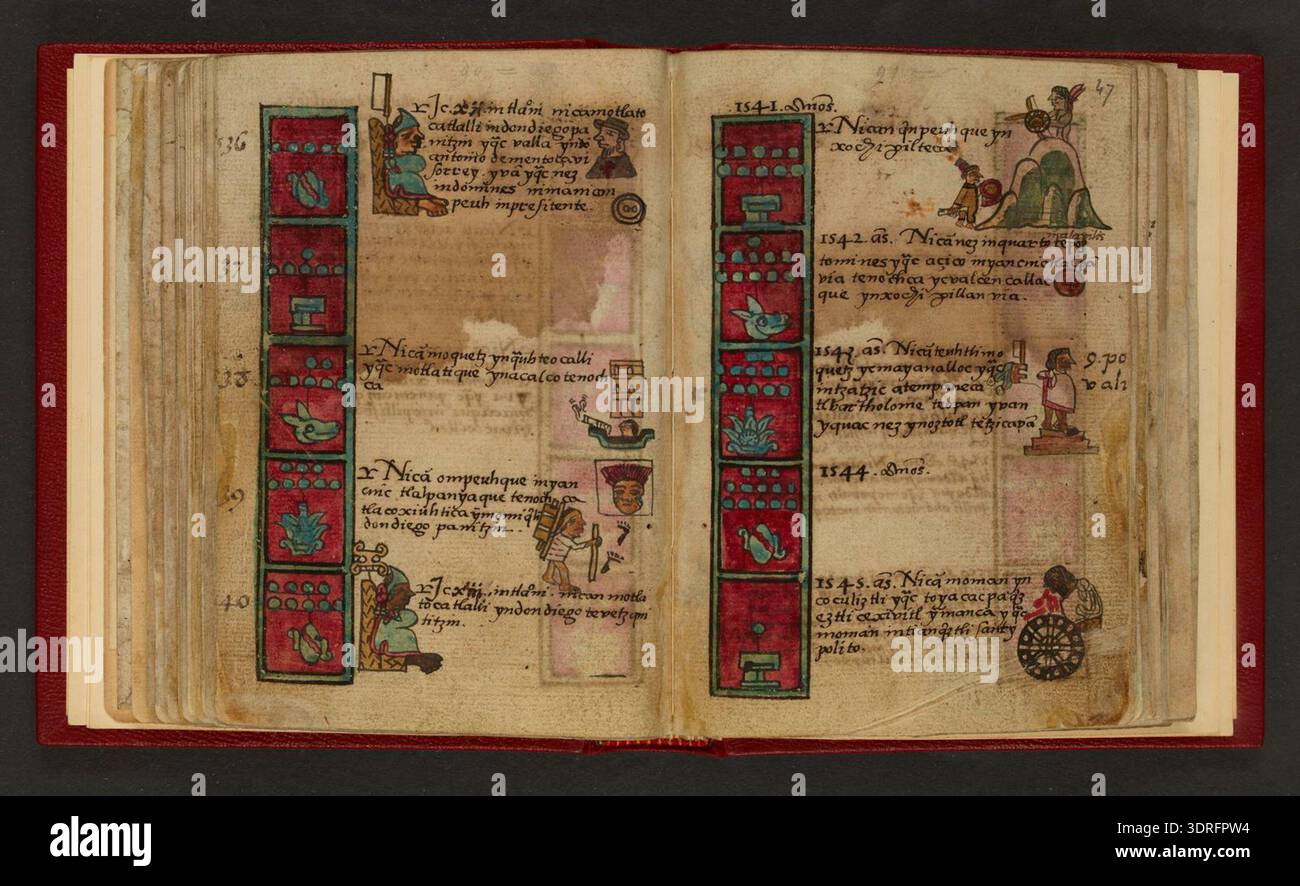 36
Jc. xii. in tlāni nicā motlato
catlalli in don diego pa
nitzin yq̄c valla ynv
antonio de mentoca vi
sorrey. yvā yq̄c nez
in domines niman icom
peuh in presitente.
37
38
Nicā moquetz yn q̄uhteocalli
yq̄c motlatique yn acalco tenoch
ca
39
Nicā ompeuhque in yan
cuic tlalpan yaque tenochca
don diego panitzin.
40
Jc. xiii. in tlāni. nican motla
tocatlalli yn don diego tevetzqui
titzin.
47
1541. años.
Nican q̄npeuhque yn
xochipilteca
1542. as. Nicā nez in quarto to
tomines yq̄c acico in yancuic
via tenochca ycvalcencallac
que yn xochipillan via.
1543. as. Nicā teuhtli mo
quetz ye mayanalloc yq̄c
intzatzic atempaneca
bartholome teopan yvan
yquac nez yn oztotl tetzicapā
9. po
vali
1544. años.
1545. as. Nicā moman yn
cocoliztli yq̄c toyacacpa q̄z
eztli ce xivitl ymanca yq̄c
moman in tianq̄ztli sant y
polito.
alamy
Image ID: 3DRFPW4
www.alamy.com